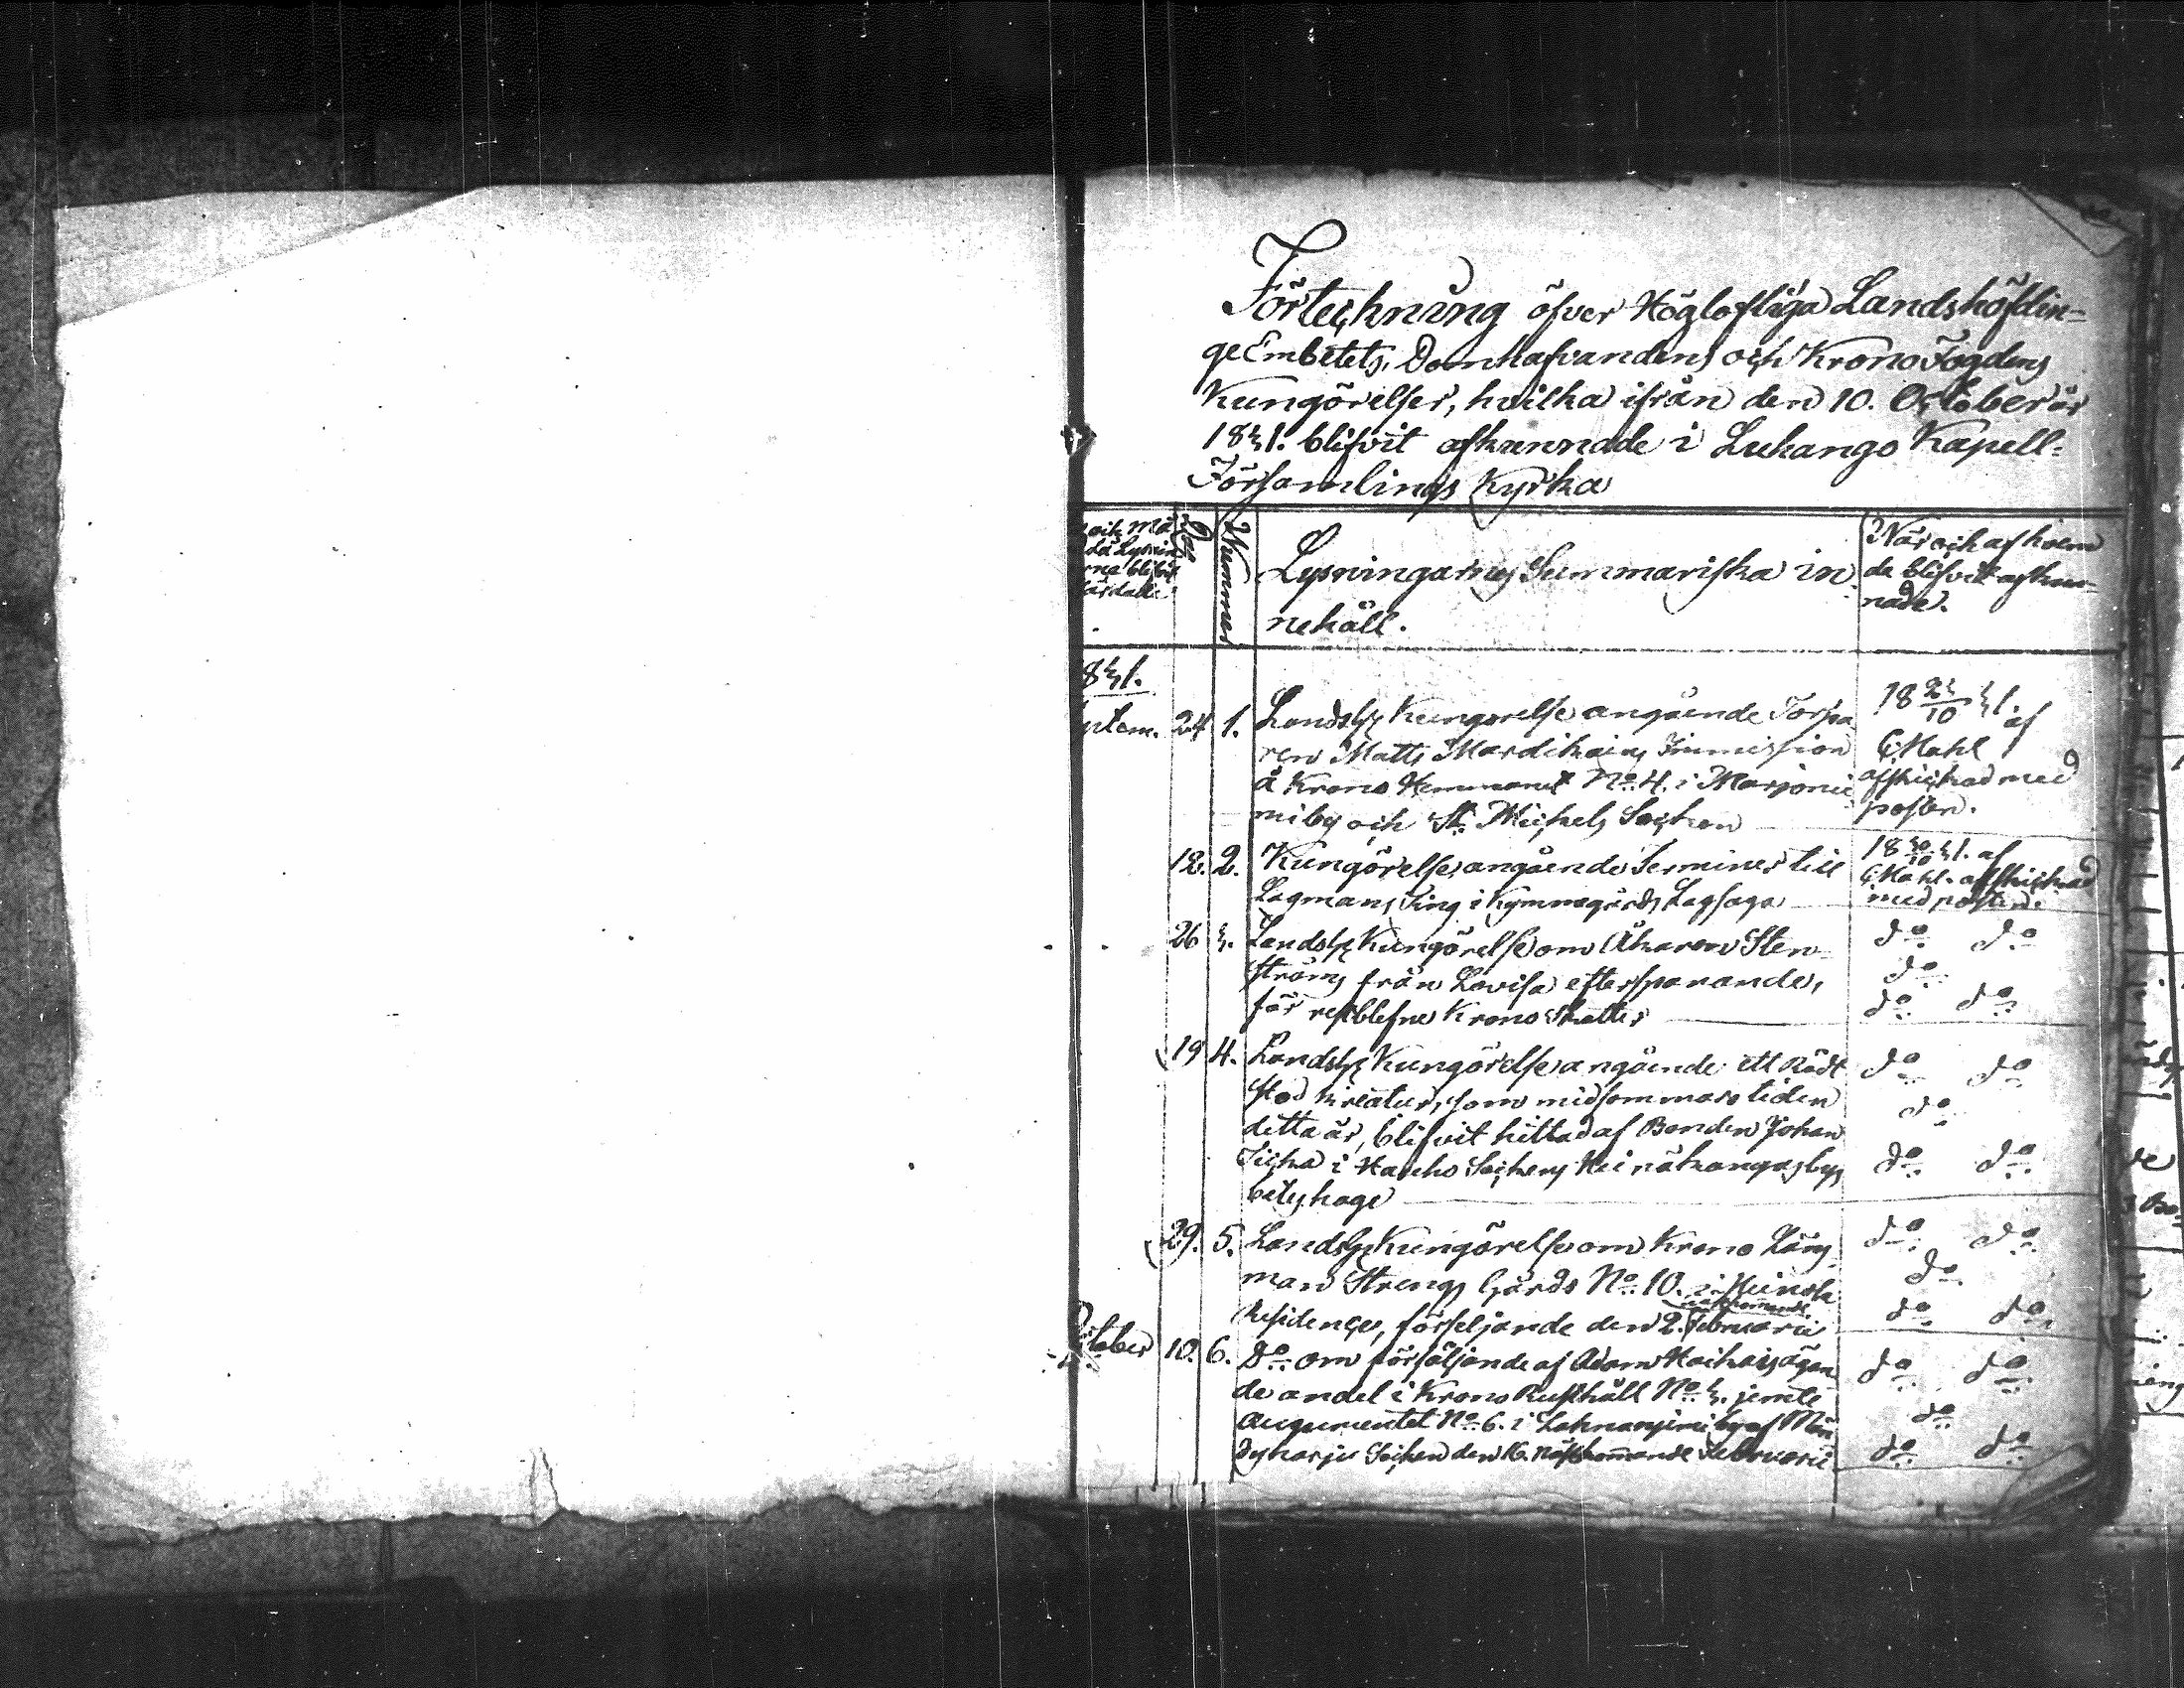 Förteckning öfver Höglofliga Landshöfdin-
ge Embetets, Domhafvandens och Krono Fogdens
Kungörelser, hvilka ifrån den 10. October år
1831. blifvit afkunnade i Luhango Kapell-
Församlings Kyrka
och Må
då Lysnin
rna blifvit
färdade
Dag
Nummer
Lysningarnes Summariska in-
nehåll.
När och af hvem
de blifvit afkun-
nade.
831.
ptem. 24 1. Landshz Kungörelse angående Torpa
ren Matts Mardikains Immission
å Krono Hemmanet No. 4. i Marjonie
mi by och St. Michels Socken
18 23/10 31. af
C: Mahl
afskickad med
posten.
12. 2. Kungörelse angående Terminer till
Lagmans Ting i Kymmegårds Lagsaga
18 30/10 31. af
C: Mahl. afskickad
med posten.
26 3. Landshz Kungörelse om Åkaren Sten-
ströms från Lovisa efterspanande,
för restblefne Krono Skatter
do do
do
do do
19 4. Landshz Kungörelse angående ett Rödt
sto kreatur, som midsommars tiden
detta år, blifvit hittad af Bonden Johan
i Hauho Sockens Heinäkangas bys
betes hage
do do
do
do do
29. 5. Landshz Kungörelse om Krono Läns
man Strengs Gårds No. 10. i Heinola
nästkommande
Residence, förseljande den 2. Februarii
do do
do
do do
October 10. 6. Do om försäljande af Adam Haikais ägan
de andel i Krono Rusthåll No. 3. jemte
augumentet No. 6. i by af Män
dyharju Socken den 16. nästkommande Februarii
do do
do
do do